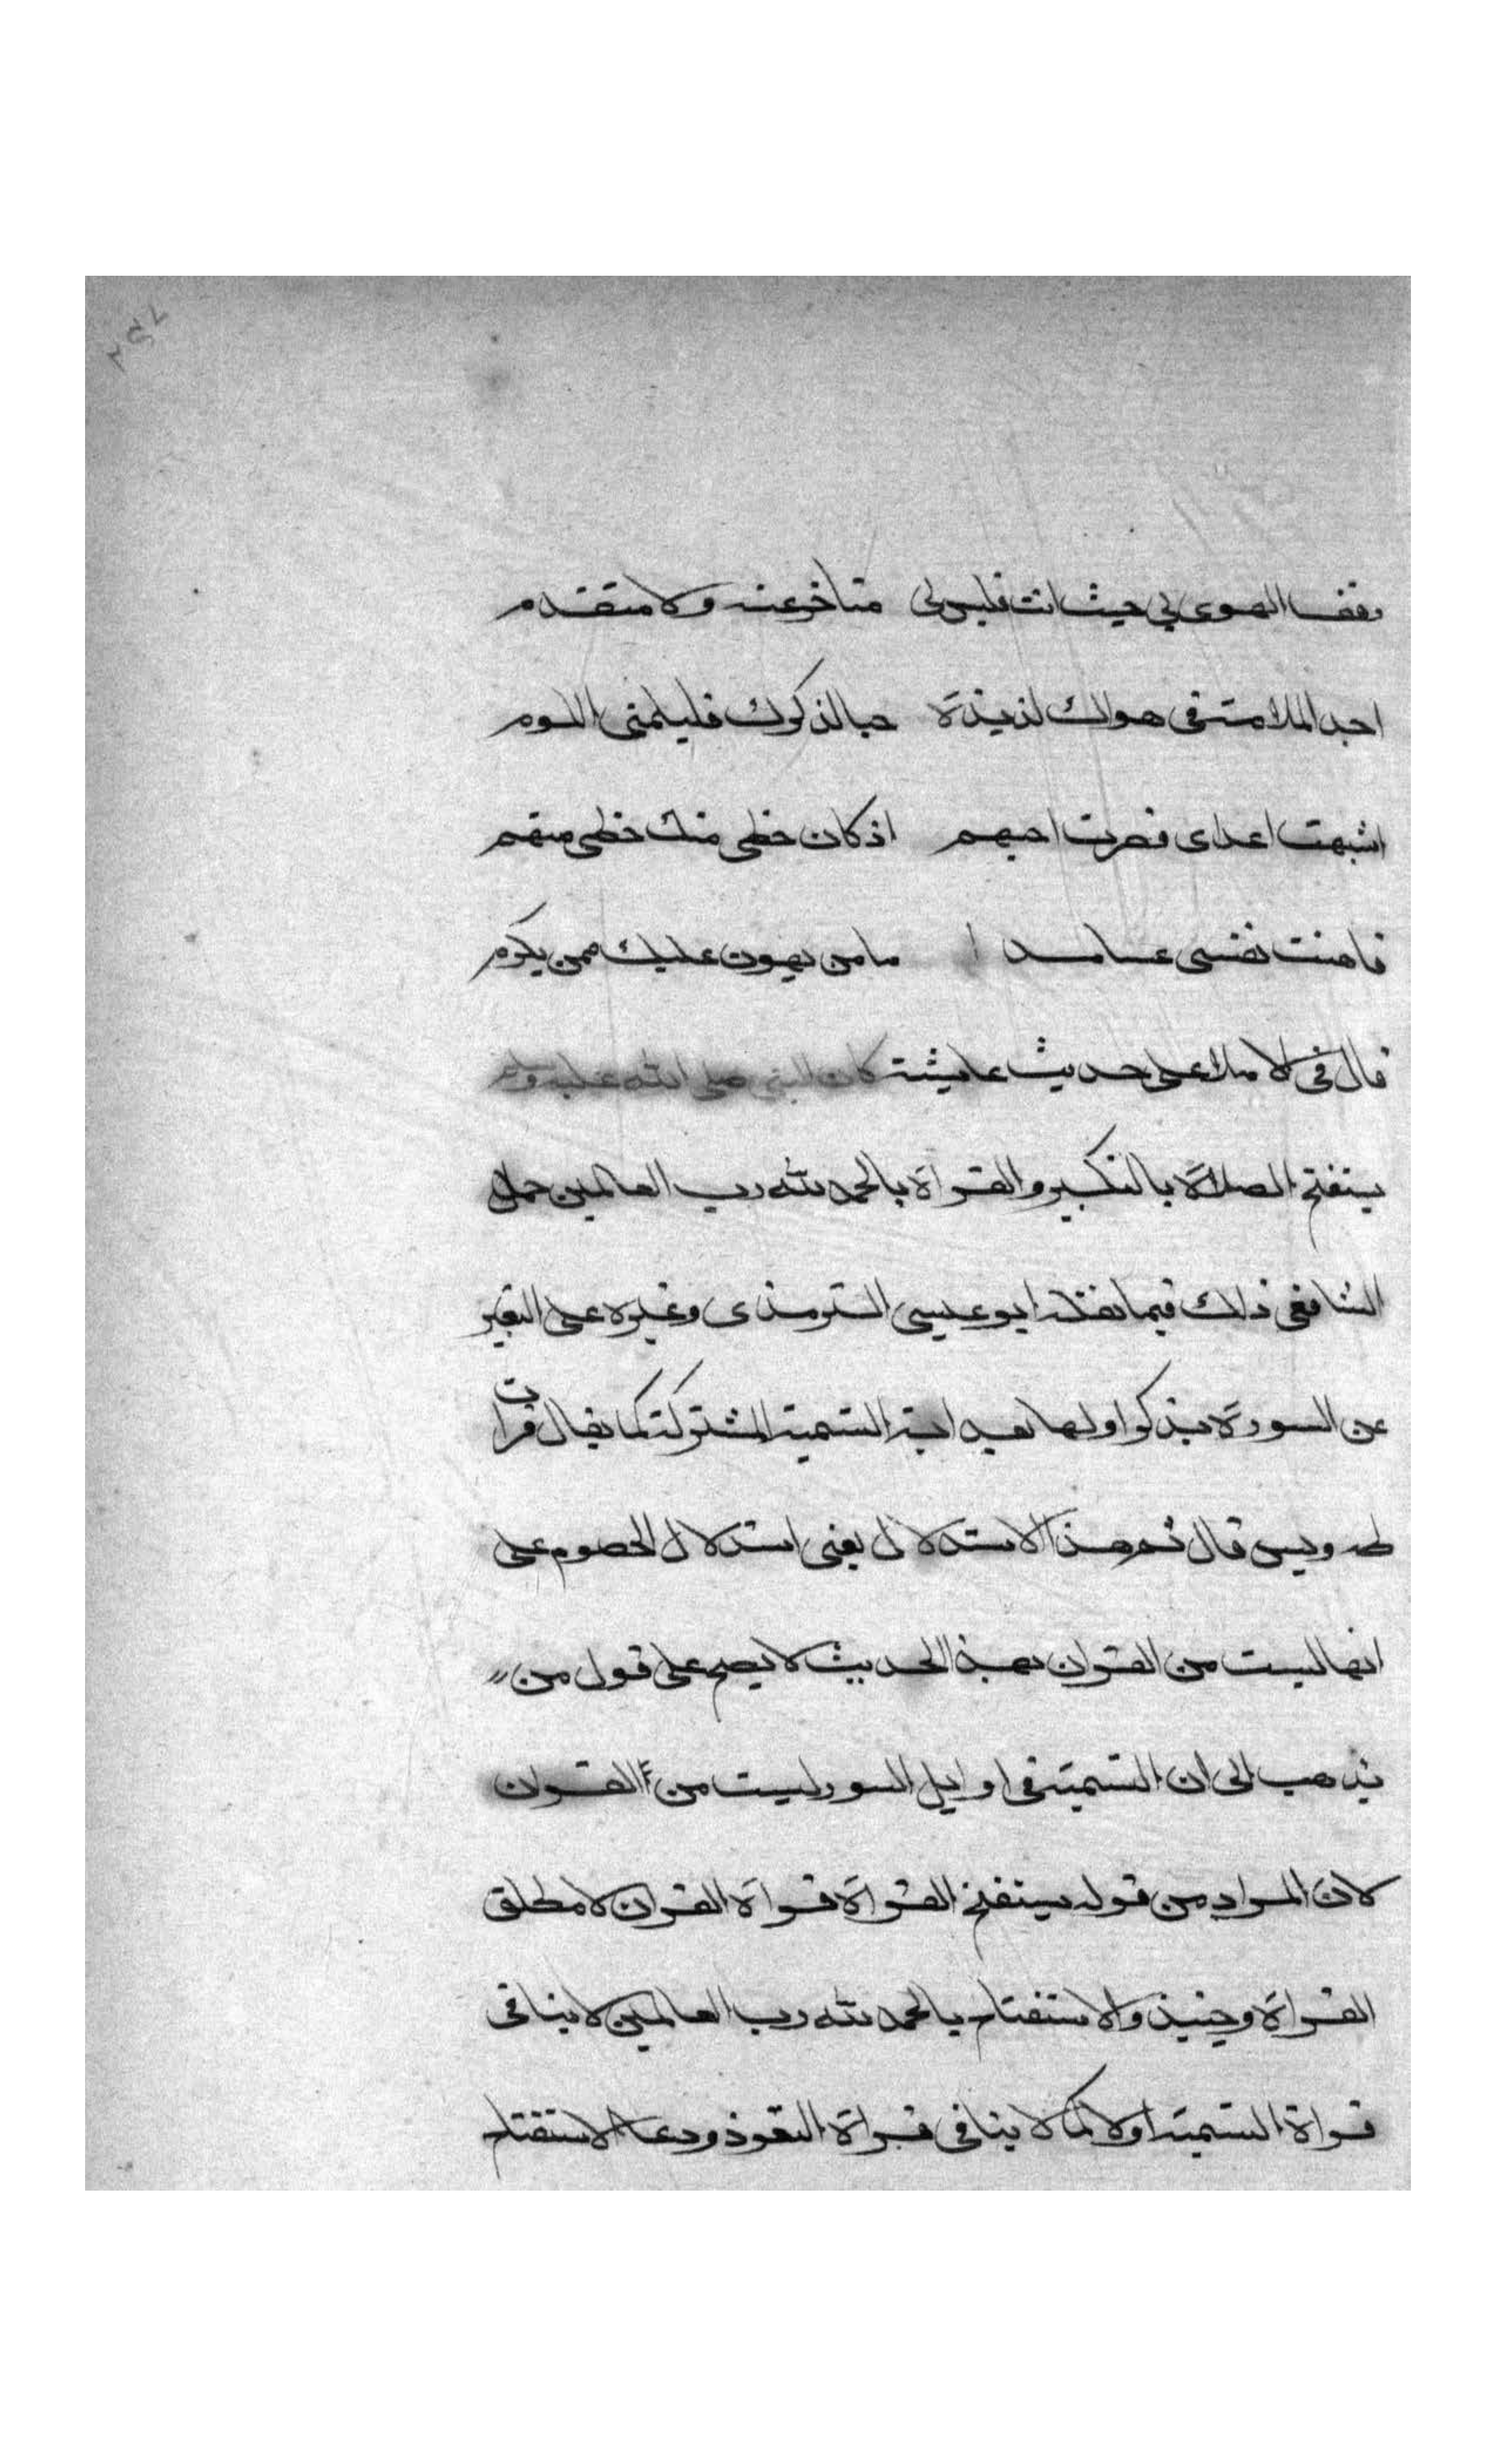 وقف الهوى بي حيث انت فليس لي متاخر عنه ولا متقدم
اجد الملامة في هواك لذيذة حبا لذكرك فليلمني اللوم
اشبهت اعداى فصرت احبهم اذ كان حظى منك حظى منهم
فاهنت نفسى عامدا ما من يهون عليك ممن يكرم
قال فى الاملا على حديث عايشة كان النبى صلى الله عليه وسلم
يستفتح الصلاة بالتكبير والقراة بالحمد لله رب العالمين حمل
الشافعى ذلك فيما نقله ابو عيسى الترمذى وغيره على التعبير
عن السورة بذكر اولها بعد اية التسمية المشتركة كما يقال قرات
طه ويس قال ثم هذا الاستدلال يعنى استدلال الخصوم على
انها ليست من القران بهذا الحديث لا يصح على قول من
يذهب الى ان التسمية فى اوايل السور ليست من القران
لان المراد من قوله يستفتح القراة قراة القران لا مطلق
القراة وحينيذ والاستفتاح بالحمد لله رب العالمين لا ينافى
قراة التسمية اولا كما لا ينافى قراة التعوذ ودعا الاستفتاح